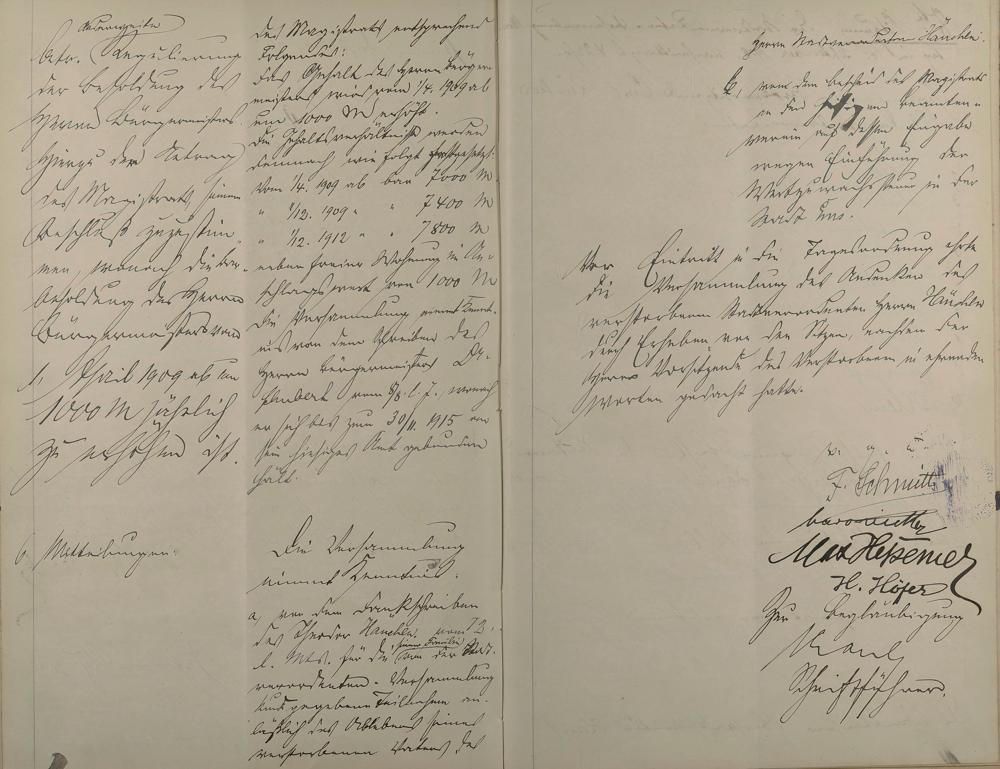 betr. Regulierung
der Besoldung des
Herrn Bürgermeisters.
Hierzu der Antrag
des Magistrats, seinem
Beschluß zuzustim-
men, wonach die
Besoldung des Herrn
Bürgermeisters vom
1. April 1909 ab um
1000 M jährlich
zu erhöhen ist.
des Magistrats entsprechend
Folgendes:
Das Gehalt des Herrn Bürger-
meisters wird vom 1/4. 1909 ab
um 1000 M erhöht.
Die Gehaltsverhältnisse werden
demnach wie folgt festgesetzt:
Vom 1/4. 1909 ab bar 7000 M
" 1/12. 1909 " " 7400 M
" 1/12. 1912 " " 7800 M
neben freier Wohnung im An-
schlagswert von 1000 M
Die Versammlung nimmt Kennt-
nis von dem Schreiben des
Herrn Bürgermeisters Dr.
vom 8/8. l. J. wonach
er sich bis zum 30/11. 1915 an
sein hiesiges Amt gebunden
hält.
6. Mitteilungen.
Die Versammlung
nimmt Kenntnis:
a, von dem Dankschreiben
des Theodor vom 12.
l. Mts. für die seiner Familie von der Stadt-
verordneten-Versammlung
kundgegebene Teilnahme an-
läßlich des Ablebens seines
verstorbenen Vaters des
Herrn Stadtverordneten
b, von dem Bescheid des Magistrats
an den Beamten-
verein auf dessen Eingabe
wegen Einführung der
Wertzuwachssteuer in der
Stadt
Vor Eintritt in die Tagesordnung ehrte
die Versammlung das Andenken des
verstorbenen Stadtverordneten Herrn
durch Erheben von den Sitzen, nachdem der
Herr Vorsitzende des Verstorbenen in ehrenden
Worten gedacht hatte.
v. g. u.
F. Schmitt
Max
H. Höfer
Zur Beglaubigung
Schriftführer.